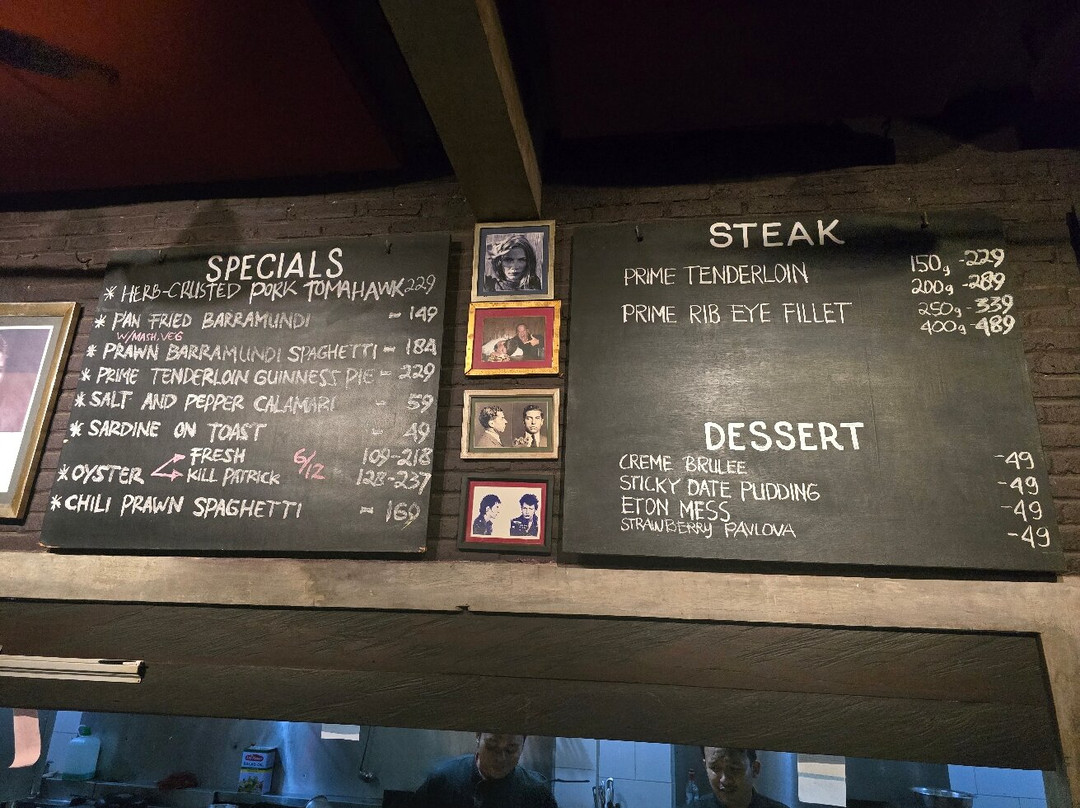 SPECIALS
* HERB-CRUSTED PORK TOMAHAWK 229
* PAN FRIED BARRAMUNDI - 149
W/MASH, VEG
* PRAWN BARRAMUNDI SPAGHETTI - 184
* PRIME TENDERLOIN GUINNESS PIE - 229
* SALT AND PEPPER CALAMARI - 59
* SARDINE ON TOAST - 49
* OYSTER FRESH 6/12 109-218
KILL PATRICK 128-237
* CHILI PRAWN SPAGHETTI - 169
STEAK
PRIME TENDERLOIN 150g -229
200g -289
PRIME RIB EYE FILLET 250g -339
400g -489
DESSERT
CREME BRULEE -49
STICKY DATE PUDDING -49
ETON MESS -49
STRAWBERRY PAVLOVA -49